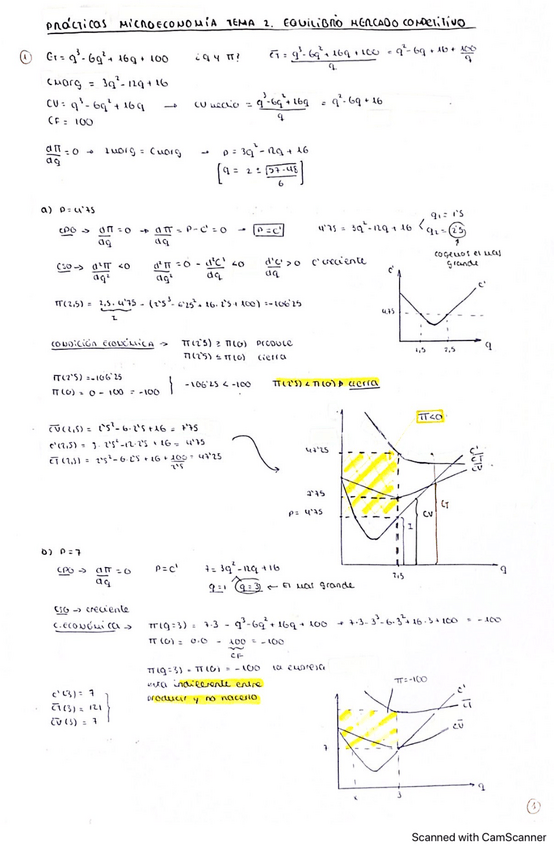 PRÁCTICOS MICROECONOMÍA TEMA 2. EQUILIBRIO MERCADO COMPETITIVO
① CT = q³ - 6q² + 16q + 100 ¿q y π? C̄T̄ = (q³ - 6q² + 16q + 100)/q = q² - 6q + 16 + 100/q
Cmarg = 3q² - 12q + 16
CV = q³ - 6q² + 16q → CV medio = (q³ - 6q² + 16q)/q = q² - 6q + 16
CF = 100
dπ/dq = 0 → Imarg = Cmarg → P = 3q² - 12q + 16
a) P = 4'75
CPO → dπ/dq = 0 → dπ/dq = P - C' = 0 → P = C' 4'75 = 3q² - 12q + 16
q₁ = 1'5
q₂ = 2'5
cogemos el más
grande
CSO → d²π/dq² < 0 d²π/dq² = 0 - d²C'/dq < 0 d²C'/dq > 0 C' creciente
C'
C'
4,75
1,5 2,5 q
π(2,5) = 2,5 · 4'75 - (2'5³ - 6·2'5² + 16·2'5 + 100) = -106'25
CONDICIÓN ECONÓMICA → π(2'5) ≥ π(0) produce
π(2'5) ≤ π(0) cierra
π(2'5) = -106'25
π(0) = 0 - 100 = -100
-106'25 < -100 π(2'5) < π(0) cierra
C̄V̄(2,5) = 2'5² - 6·2'5 + 16 = 7'75
C'(2,5) = 3·2'5² - 12·2'5 + 16 = 4'75
C̄T̄(2,5) = 2'5² - 6·2'5 + 16 + 100/2'5 = 47'25
π<0
47'25
C'
C̄T̄
C̄V̄
7'75
P = 4'75
I CV CT
2,5 q
b) P = 7
CPO → dπ/dq = 0 P = C' 7 = 3q² - 12q + 16
q=1 q=3 ← El más grande
CSO → creciente
C. económica → π(q=3) = 7·3 - q³ - 6q² + 16q + 100 → 7·3 - 3³ - 6·3² + 16·3 + 100 = -100
π(0) = 0·0 - 100 = -100
CF
π(q=3) = π(0) = -100 la empresa
está indiferente entre
producir y no hacerlo
C'(3) = 7
C̄T̄(3) = 121
C̄V̄(3) = 7
π=-100
C'
C̄T̄
C̄V̄
7
3 q
①
Scanned with CamScanner